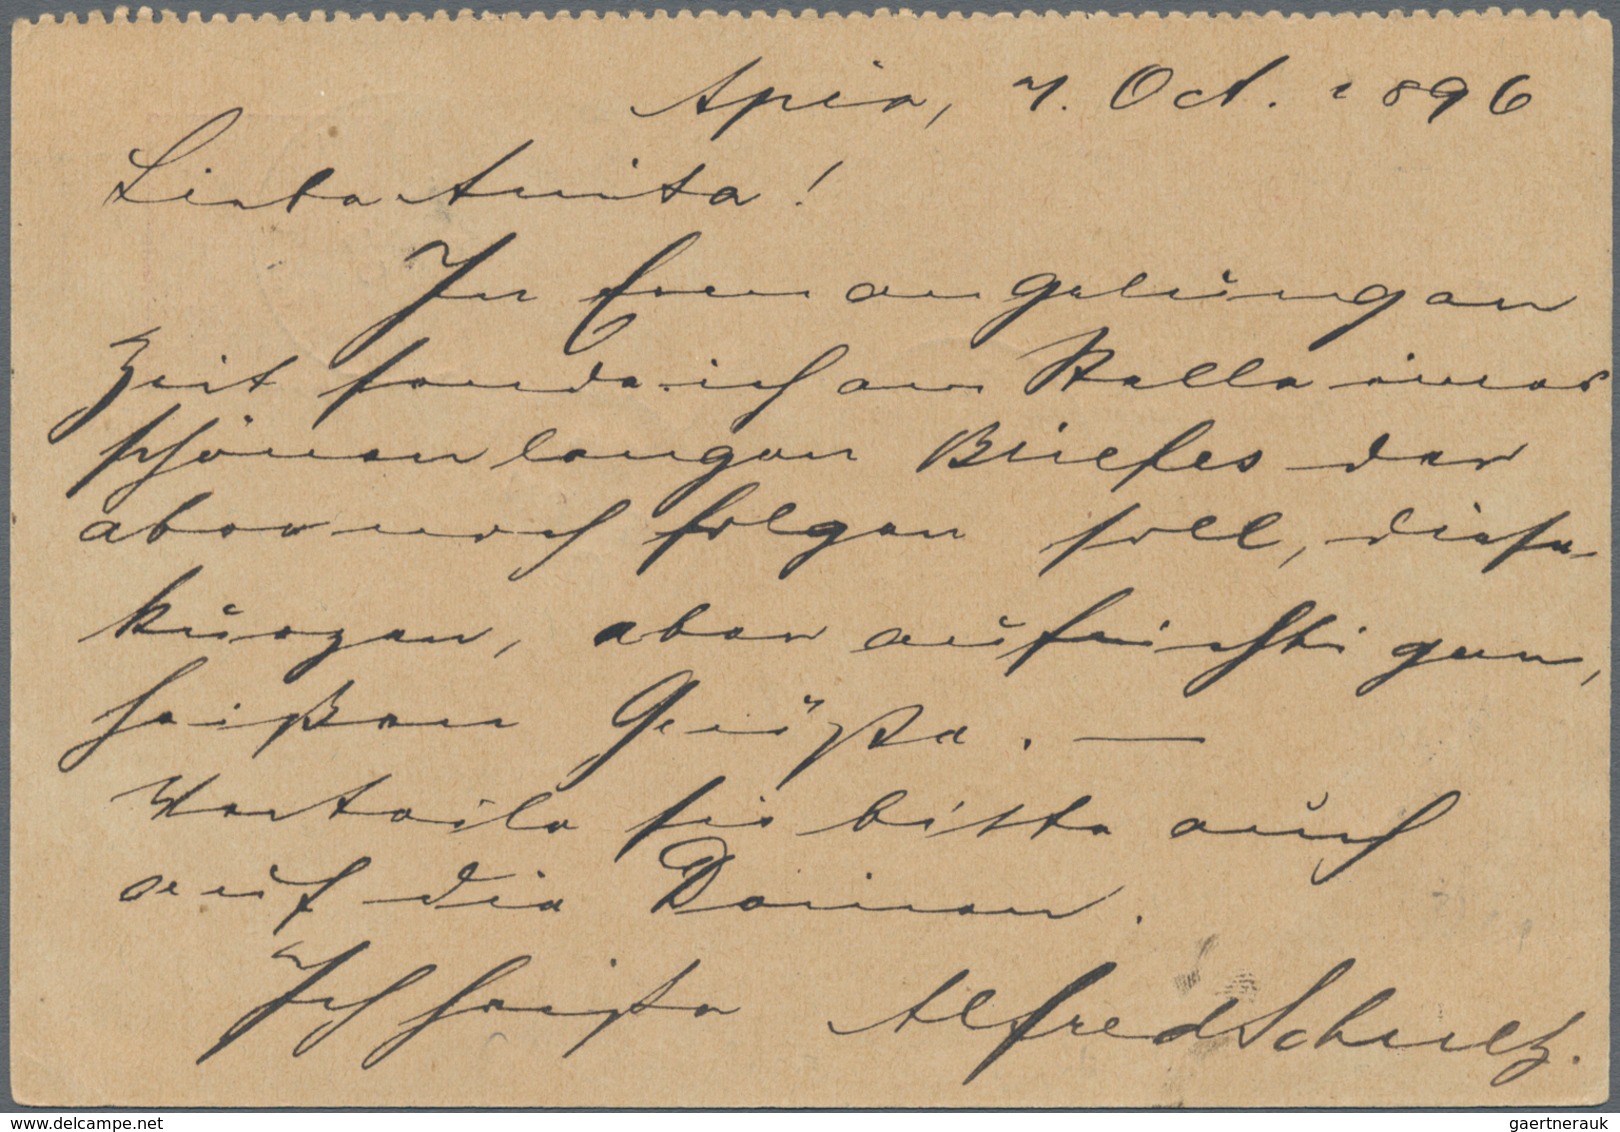 Apia, 7. Oct. 1896
Liebe Anita!
In Ermangelung an
Zeit sende ich an Stelle eines
schönen langen Briefes der
aber noch folgen soll, diese
kurzen, aber aufrichtigen,
heißen Grüße. —
Verteile sie bitte auch
auf die Deinen.
Ich heiße Alfred Schultz.
www.delcampe.net
gaertnerauk